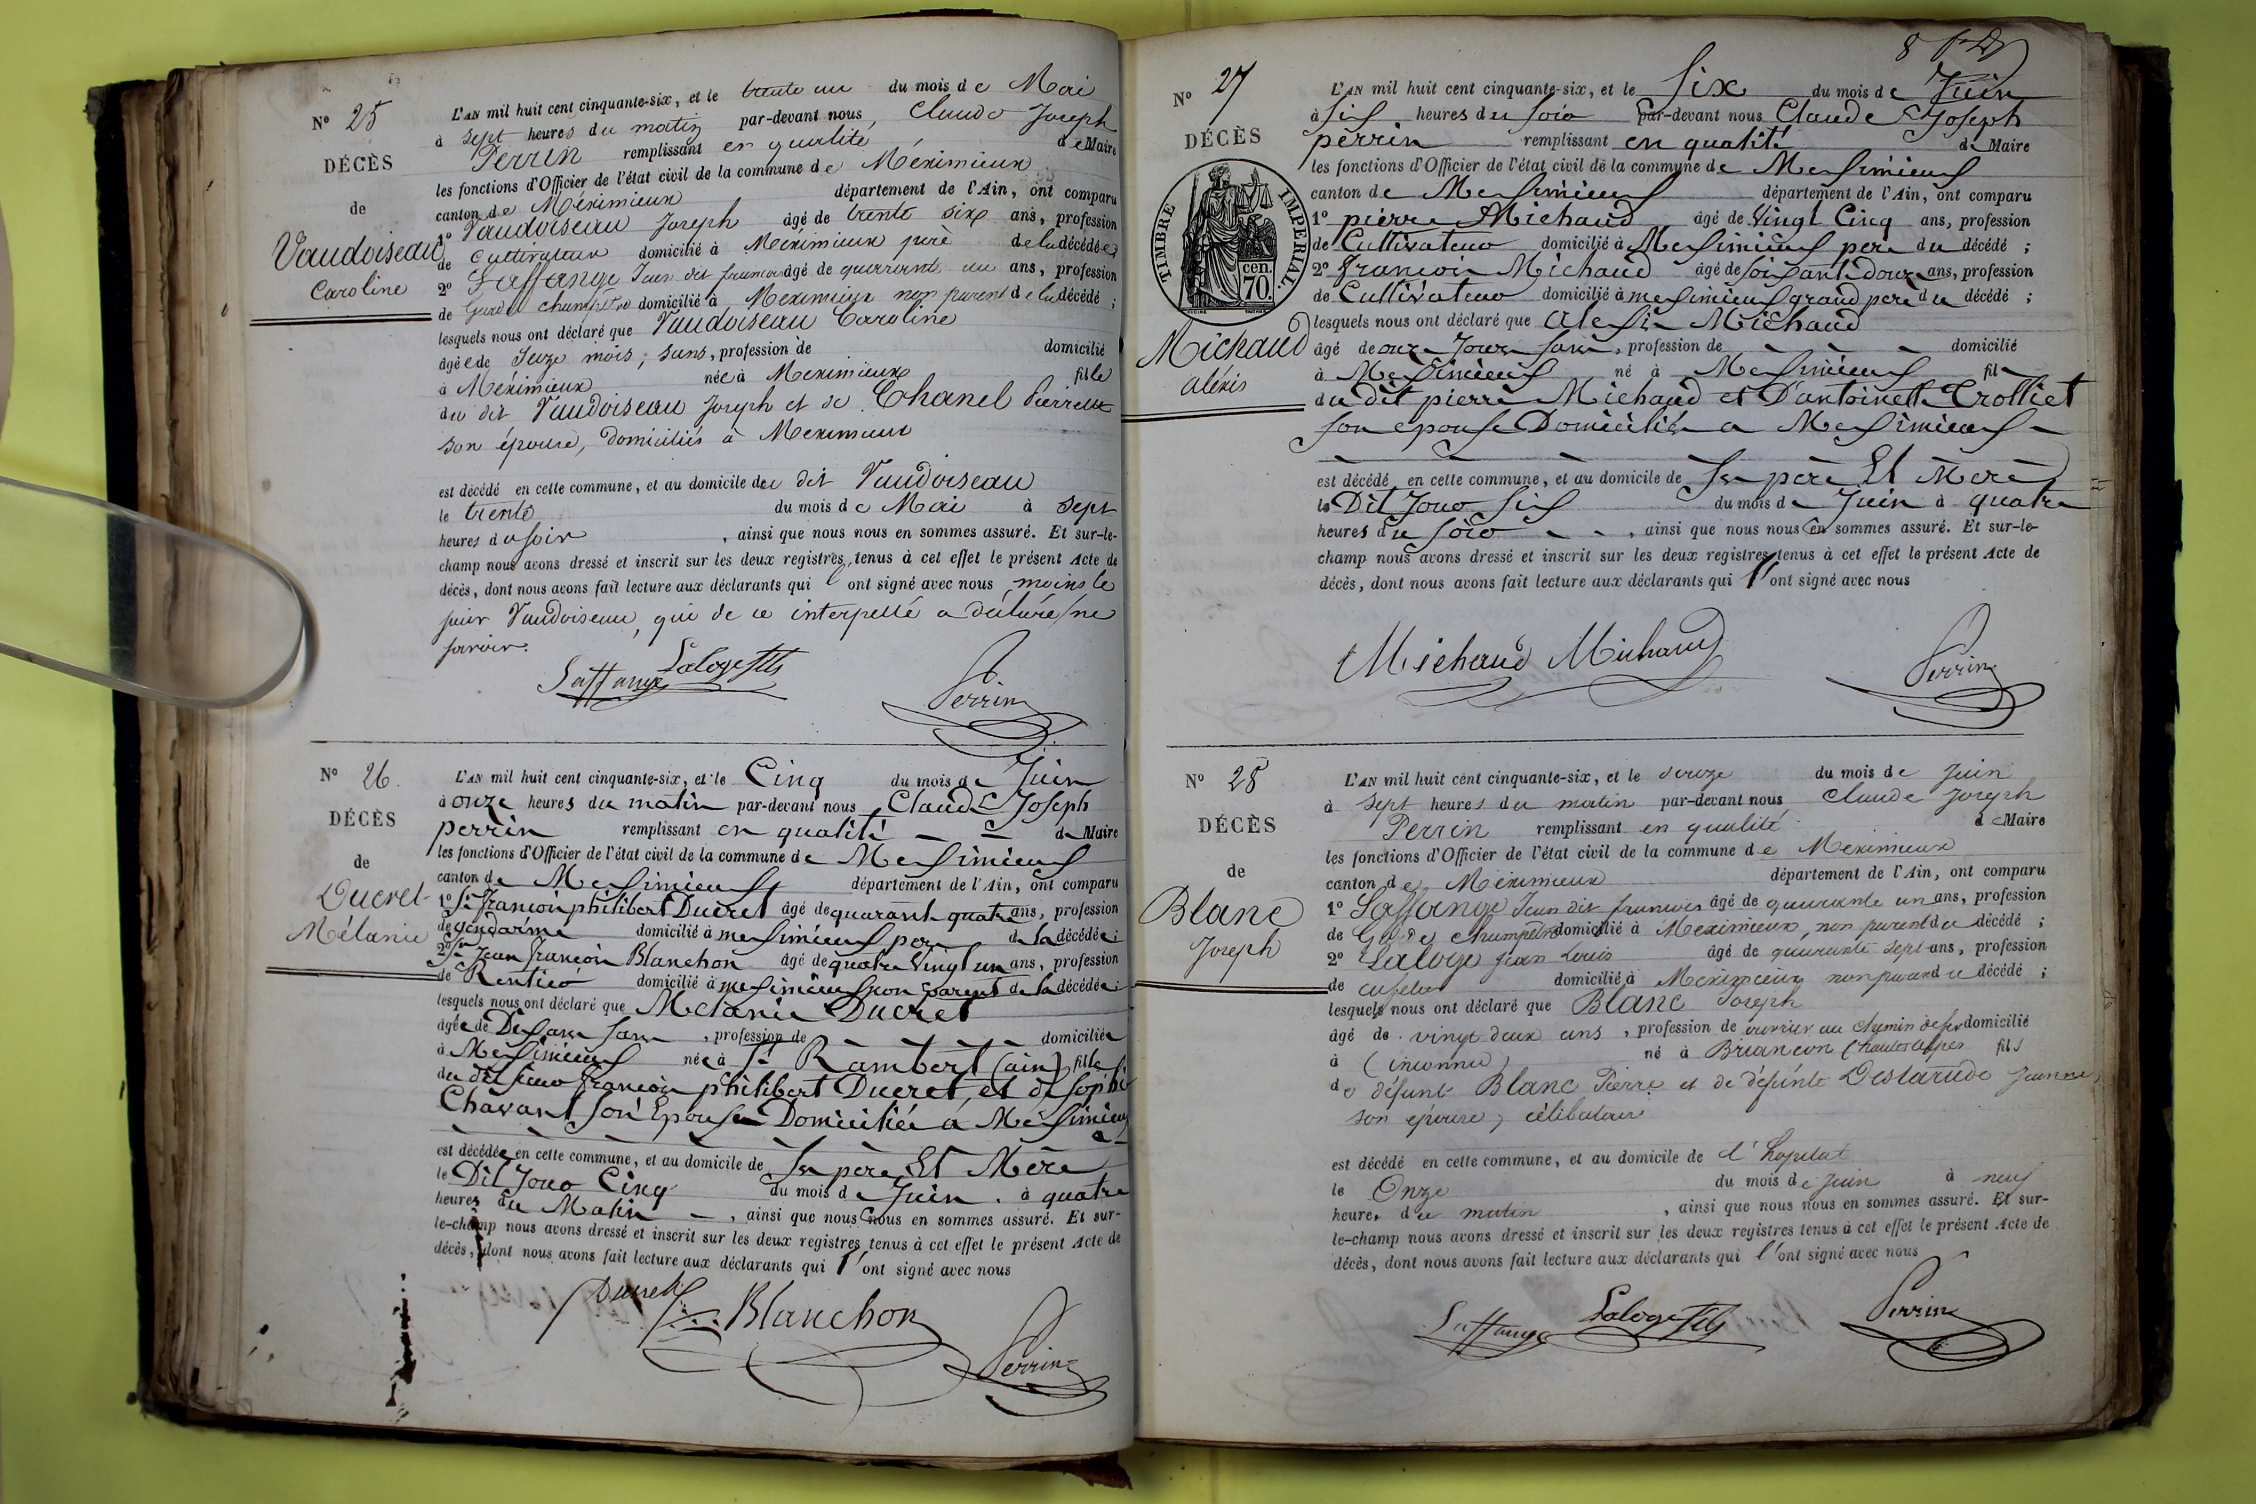 N° 25
DÉCÈS
de
Vaudoiseau
Caroline
L'AN mil huit cent cinquante-six, et le trente un du mois de Mai
à sept heures du matin par-devant nous, Claude Joseph
Perrin remplissant en qualité de Maire
les fonctions d'Officier de l'état civil de la commune de Méximieux
canton de Méximieux département de l'Ain, ont comparu
1° Vaudoiseau Joseph âgé de trente six ans, profession
de cultivateur domicilié à Méximieux père de la décédée
2° Laffange Jean dit françois âgé de quarante un ans, profession
de Garde champêtre domicilié à Meximieux non parent de la décédé ;
lesquels nous ont déclaré que Vaudoiseau Caroline
âgée de seize mois, sans, profession de domicilié
à Méximieux née à Meximieux fille
du dit Vaudoiseau Joseph et de Chanel Pierrette
son épouse, domiciliés à Meximieux
est décédé en cette commune, et au domicile du dit Vaudoiseau
le trente du mois de Mai à sept
heures du soir, ainsi que nous nous en sommes assuré. Et sur-le-
champ nous avons dressé et inscrit sur les deux registres, tenus à cet effet le présent Acte de
décès, dont nous avons fait lecture aux déclarants qui l'ont signé avec nous moins le
sieur Vaudoiseau, qui de ce interpellé a déclaré ne
savoir.
Laffange Laloge fils
Perrin
N° 26
DÉCÈS
de
Ducret
Mélanie
L'AN mil huit cent cinquante-six, et le Cinq du mois de Juin
à onze heures du matin par-devant nous Claude Joseph
perrin remplissant en qualité de Maire
les fonctions d'Officier de l'état civil de la commune de Messimieux
canton de Messimieux département de l'Ain, ont comparu
1° Sr françois philibert Ducret âgé de quarante quatre ans, profession
de gendarme domicilié à messimieux pere de la décédée;
2° Sr Jean françois Blanchon âgé de quatre Vingt un ans, profession
de Rentier domicilié à messimieux non parent de la décédée;
lesquels nous ont déclaré que Melanie Ducret
âgée de Dix ans sans, profession de domiciliée
à Messimieux née à St Rambert (ain) fille
du dit sieur françois philibert Ducret, et de sophie
Chavant son Epouse Domiciliée à Messimieux
est décédée en cette commune, et au domicile de ses père Et Mère
le Dit Jour Cinq du mois de Juin à quatre
heures du Matin, ainsi que nous nous en sommes assuré. Et sur-
le-champ nous avons dressé et inscrit sur les deux registres tenus à cet effet le présent Acte de
décès, dont nous avons fait lecture aux déclarants qui l'ont signé avec nous
Ducret Blanchon
Perrin
N° 27
DÉCÈS
TIMBRE IMPERIAL
70 cen.
Michaud
aléxis
L'AN mil huit cent cinquante-six, et le Six du mois de Juin
à six heures du soir par-devant nous Claude Joseph
perrin remplissant en qualité de Maire
les fonctions d'Officier de l'état civil de la commune de Messimieux
canton de Messimieux département de l'Ain, ont comparu
1° pierre Michaud âgé de Vingt Cinq ans, profession
de Cultivateur domicilié à Messimieux pere du décédé ;
2° françois Michaud âgé de soixante douze ans, profession
de Cultivateur domicilié à messimieux grand pere du décédé ;
lesquels nous ont déclaré que alexis Michaud
âgé de onze Jours sans, profession de domicilié
à Messimieux né à Messimieux fils
du dit pierre Michaud et D'antoinette Trolliet
son epouse Domiciliés a Messimieux
est décédé en cette commune, et au domicile de ses père Et Mere
le Dit Jour six du mois de Juin à quatre
heures du soir, ainsi que nous nous en sommes assuré. Et sur-le-
champ nous avons dressé et inscrit sur les deux registres tenus à cet effet le présent Acte de
décès, dont nous avons fait lecture aux déclarants qui l'ont signé avec nous
Michaud Michaud
Perrin
N° 28
DÉCÈS
de
Blanc
Joseph
L'AN mil huit cent cinquante-six, et le douze du mois de Juin
à sept heures du matin par-devant nous Claude Joseph
Perrin remplissant en qualité de Maire
les fonctions d'Officier de l'état civil de la commune de Meximieux
canton de Méximieux département de l'Ain, ont comparu
1° Laffange Jean dit françois âgé de quarante un ans, profession
de Garde champêtre domicilié à Meximieux, non parent du décédé ;
2° Laloge Jean Louis âgé de quarante sept ans, profession
de cafetier domicilié à Meximieux non parent du décédé ;
lesquels nous ont déclaré que Blanc Joseph
âgé de vingt deux ans, profession de ouvrier au chemin de fer domicilié
à (inconnu) né à Briançon (hautes alpes fils
de défunt Blanc Pierre et de défunte Destarude Jeanne,
son épouse, célibataire
est décédé en cette commune, et au domicile de l'hopital
le Onze du mois de Juin à neuf
heures du matin, ainsi que nous nous en sommes assuré. Et sur-
le-champ nous avons dressé et inscrit sur les deux registres tenus à cet effet le présent Acte de
décès, dont nous avons fait lecture aux déclarants qui l'ont signé avec nous
Laffange Laloge fils Perrin